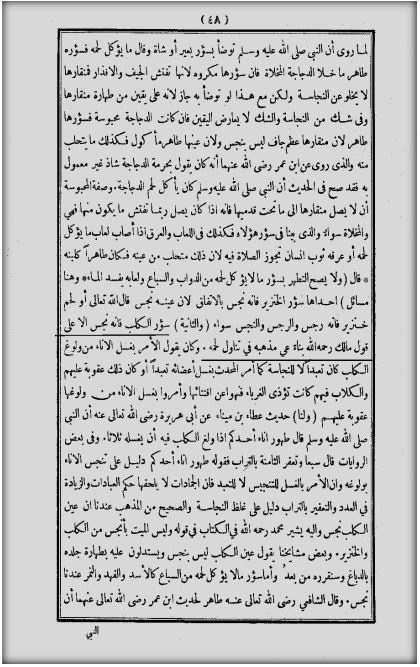 (٤٨)
لما روى أن النبي صلى الله عليه وسلم توضأ بسؤر بعير أو شاة وقال ما يؤكل لحمه فسؤره
طاهر ما خلا الدجاجة المخلاة فان سؤرها مكروه لانها تفتش الجيف والاقذار فمنقارها
لا يخلو عن النجاسة ولكن مع هذا لو توضأ به جاز لانه على يقين من طهارة منقارها
وفى شك من النجاسة والشك لا يعارض اليقين فان كانت محبوسة فسؤرها
طاهر لان منقارها عظم جاف ليس بنجس ولان عينها طاهر مأكول فكذلك ما يتحلب
منه والذى روى عن ابن عمر رضى الله عنهما أنه كان يقول بحرمة الدجاجة شاذ غير معمول
به فقد صح فى الحديث أن النبي صلى الله عليه وسلم كان يأكل لحم الدجاجة وصفة المحبوسة
أن لا يصل منقارها الى ما تحت قدميها فانه اذا كان يصل ربما تفتش ما يكون منها فهى
والمخلاة سواء والذى بينا فى سؤر هؤلاء فكذلك فى اللعاب والعرق اذا أصاب لعاب ما يؤكل
لحمه أو عرقه ثوب انسان تجوز الصلاة فيه لان ذلك متحلب من عينه فكان طاهراً كلبنه
* قال (ولا يصح التطهر بسؤر ما لا يؤكل لحمه من الدواب والسباع ولعابه يفسد الماء * وهنا
مسائل) احداها سؤر الخنزير فانه نجس بالاتفاق لان عينه نجس قال الله تعالى أو لحم
خنزير فانه رجس والرجس والنجس سواء (والثانية) سؤر الكلب فانه نجس الا على
قول مالك رحمه الله بناء على مذهبه فى تناول لحمه . وكان يقول الأمر بغسل الاناء من ولوغ
الكلب كان تعبداً لا للنجاسة كما أمر المحدث بغسل أعضائه تعبداً أو كان ذلك عقوبة عليهم
والكلاب فيهم كانت تؤذى الغرباء فنهوا عن اقتنائها وأمروا بغسل الاناء من ولوغها
عقوبة عليهم (ولنا) حديث عطاء بن ميناء عن أبى هريرة رضى الله تعالى عنه ان النبي
صلى الله عليه وسلم قال طهور اناء أحدكم اذا ولغ الكلب فيه أن يغسله ثلاثا . وفى بعض
الروايات قال سبعا وتعفر الثامنة بالتراب فقوله طهور اناء أحدكم دليل على تنجس الاناء
بولوغه وان الأمر بالغسل للتنجيس لا للتعبد فان الجمادات لا يلحقها حكم العبادات والزيادة
فى العدد والتعفير بالتراب دليل على غلظ النجاسة والصحيح من المذهب عندنا ان عين
الكلب نجس واليه يشير محمد رحمه الله فى الكتاب فى قوله وليس الميت بأنجس من الكلب
والخنزير . وبعض مشايخنا يقول عين الكلب ليس بنجس ويستدلون عليه بطهارة جلده
بالدباغ وسنقرره من بعد وأما سؤر مالا يؤكل لحمه من السباع كالأسد والفهد والنمر عندنا
نجس . وقال الشافعي رضى الله تعالى عنه طاهر لحديث ابن عمر رضى الله تعالى عنهما أن
النبي